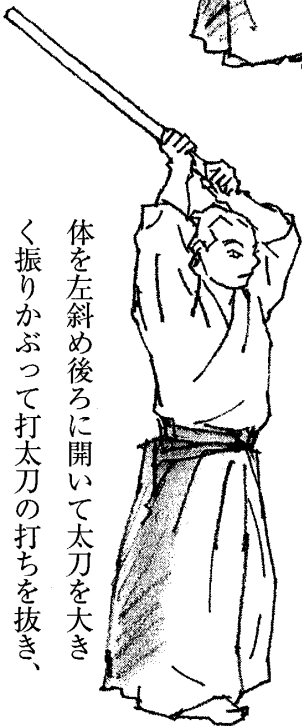 体を左斜め後ろに開いて太刀を大き
く振りかぶって打太刀の打ちを抜き、